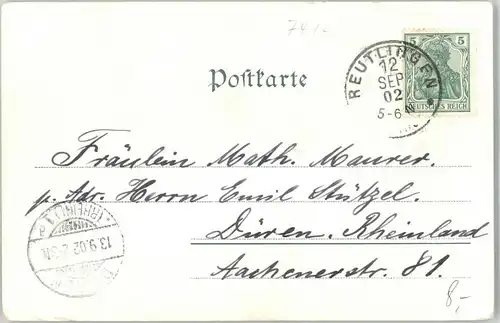 74.-
Postkarte
REUTLINGEN
12
SEP
02
5-6 N
5 5
DEUTSCHES REICH
Fräulein Math. Maurer.
p. Adr. Herrn Emil Stützel.
Düren. Rheinland
Aachenerstr. 81.
13.9.02
8,-